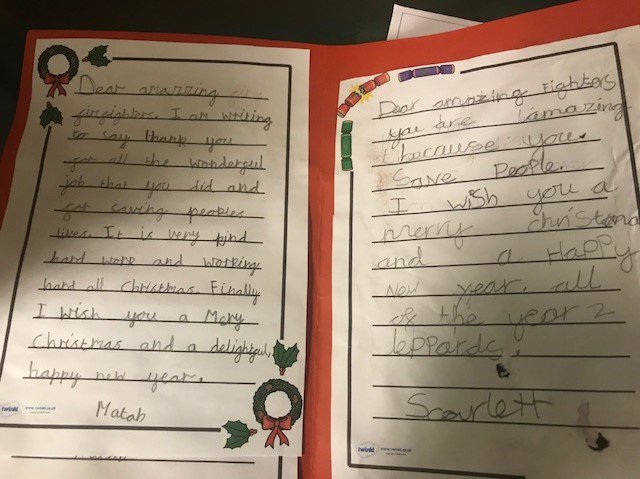 Dear amazzing
firefighters. I am writing
to say thank you
for all the wonderful
job that you did and
for saving peoples
lives. It is very kind
hard work and working
hard all Christmas. Finally
I wish you a Mery
Christmas and a delightful,
happy new year.
Matab
twinkl www.twinkl.co.uk
Dear amazing Fighters
you are amazing
because you.
Save People.
I wish you a
merry christma
and a Happy
New year. all
of the year 2
leppards.
Scarlett
twinkl www.twinkl.co.uk